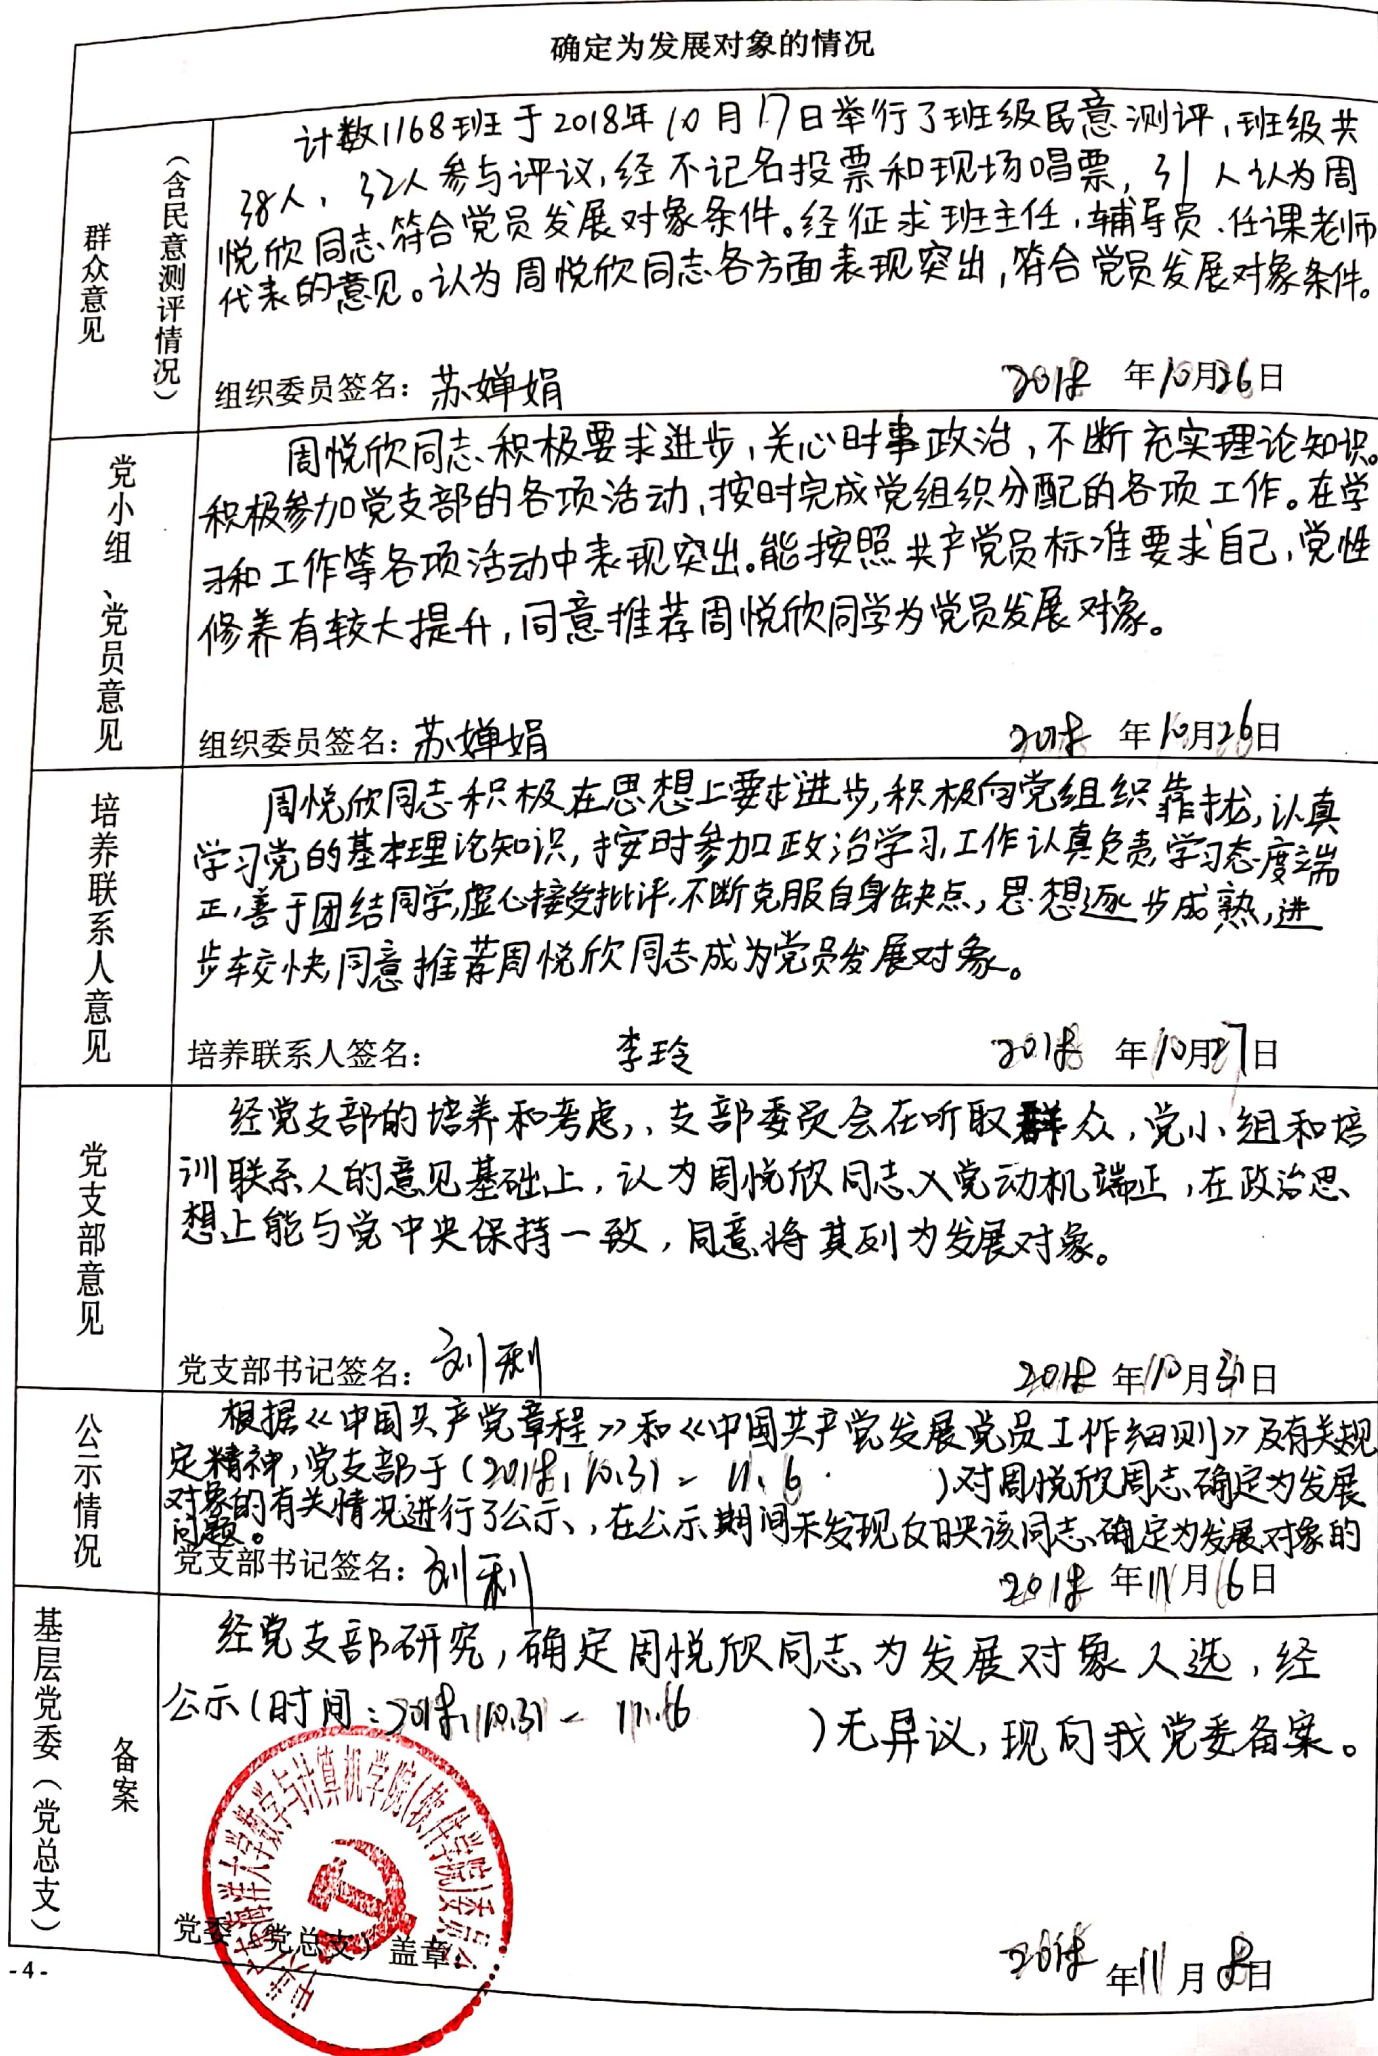 确定为发展对象的情况
群众意见
（含民意测评情况）
计数1168班于2018年10月17日举行了班级民意测评，班级共
38人，32人参与评议，经不记名投票和现场唱票，31人认为周
悦欣同志符合党员发展对象条件。经征求班主任，辅导员、任课老师
代表的意见。认为周悦欣同志各方面表现突出，符合党员发展对象条件。
组织委员签名：苏婵娟 2018年10月26日
党小组、党员意见
周悦欣同志积极要求进步，关心时事政治，不断充实理论知识。
积极参加党支部的各项活动，按时完成党组织分配的各项工作。在学
习和工作等各项活动中表现突出。能按照共产党员标准要求自己，党性
修养有较大提升，同意推荐周悦欣同学为党员发展对象。
组织委员签名：苏婵娟 2018年10月26日
培养联系人意见
周悦欣同志积极在思想上要求进步，积极向党组织靠拢，认真
学习党的基本理论知识，按时参加政治学习，工作认真负责，学习态度端
正，善于团结同学，虚心接受批评，不断克服自身缺点，思想逐步成熟，进
步较快，同意推荐周悦欣同志成为党员发展对象。
培养联系人签名： 李玲 2018年10月27日
党支部意见
经党支部的培养和考虑，、支部委员会在听取群众，党小组和培
训联系人的意见基础上，认为周悦欣同志入党动机端正，在政治思
想上能与党中央保持一致，同意将其列为发展对象。
党支部书记签名：刘利 2018年10月31日
公示情况
根据《中国共产党章程》和《中国共产党发展党员工作细则》及有关规
定精神，党支部于（2018，10.31－11.6 ）对周悦欣周志确定为发展
对象的有关情况进行了公示、，在公示期间未发现反映该同志确定为发展对象的
问题。
党支部书记签名：刘利 2018年11月6日
基层党委（党总支）
备案
经党支部研究，确定周悦欣同志为发展对象人选，经
公示（时间：2018，10.31－11.6 ）无异议，现向我党委备案。
数学与计算机学院(软件学院)委员会
党委（党总支）盖章：
2018年11月8日
-4-